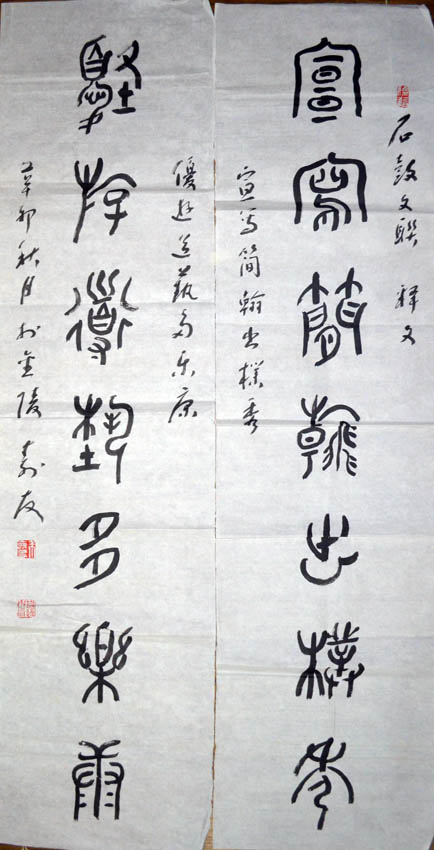 石鼓文联 释文
宣写简翰出朴秀
宣寫簡翰出樸秀
优游道艺多乐康
優游道藝多樂康
辛卯秋月於金陵 寿友